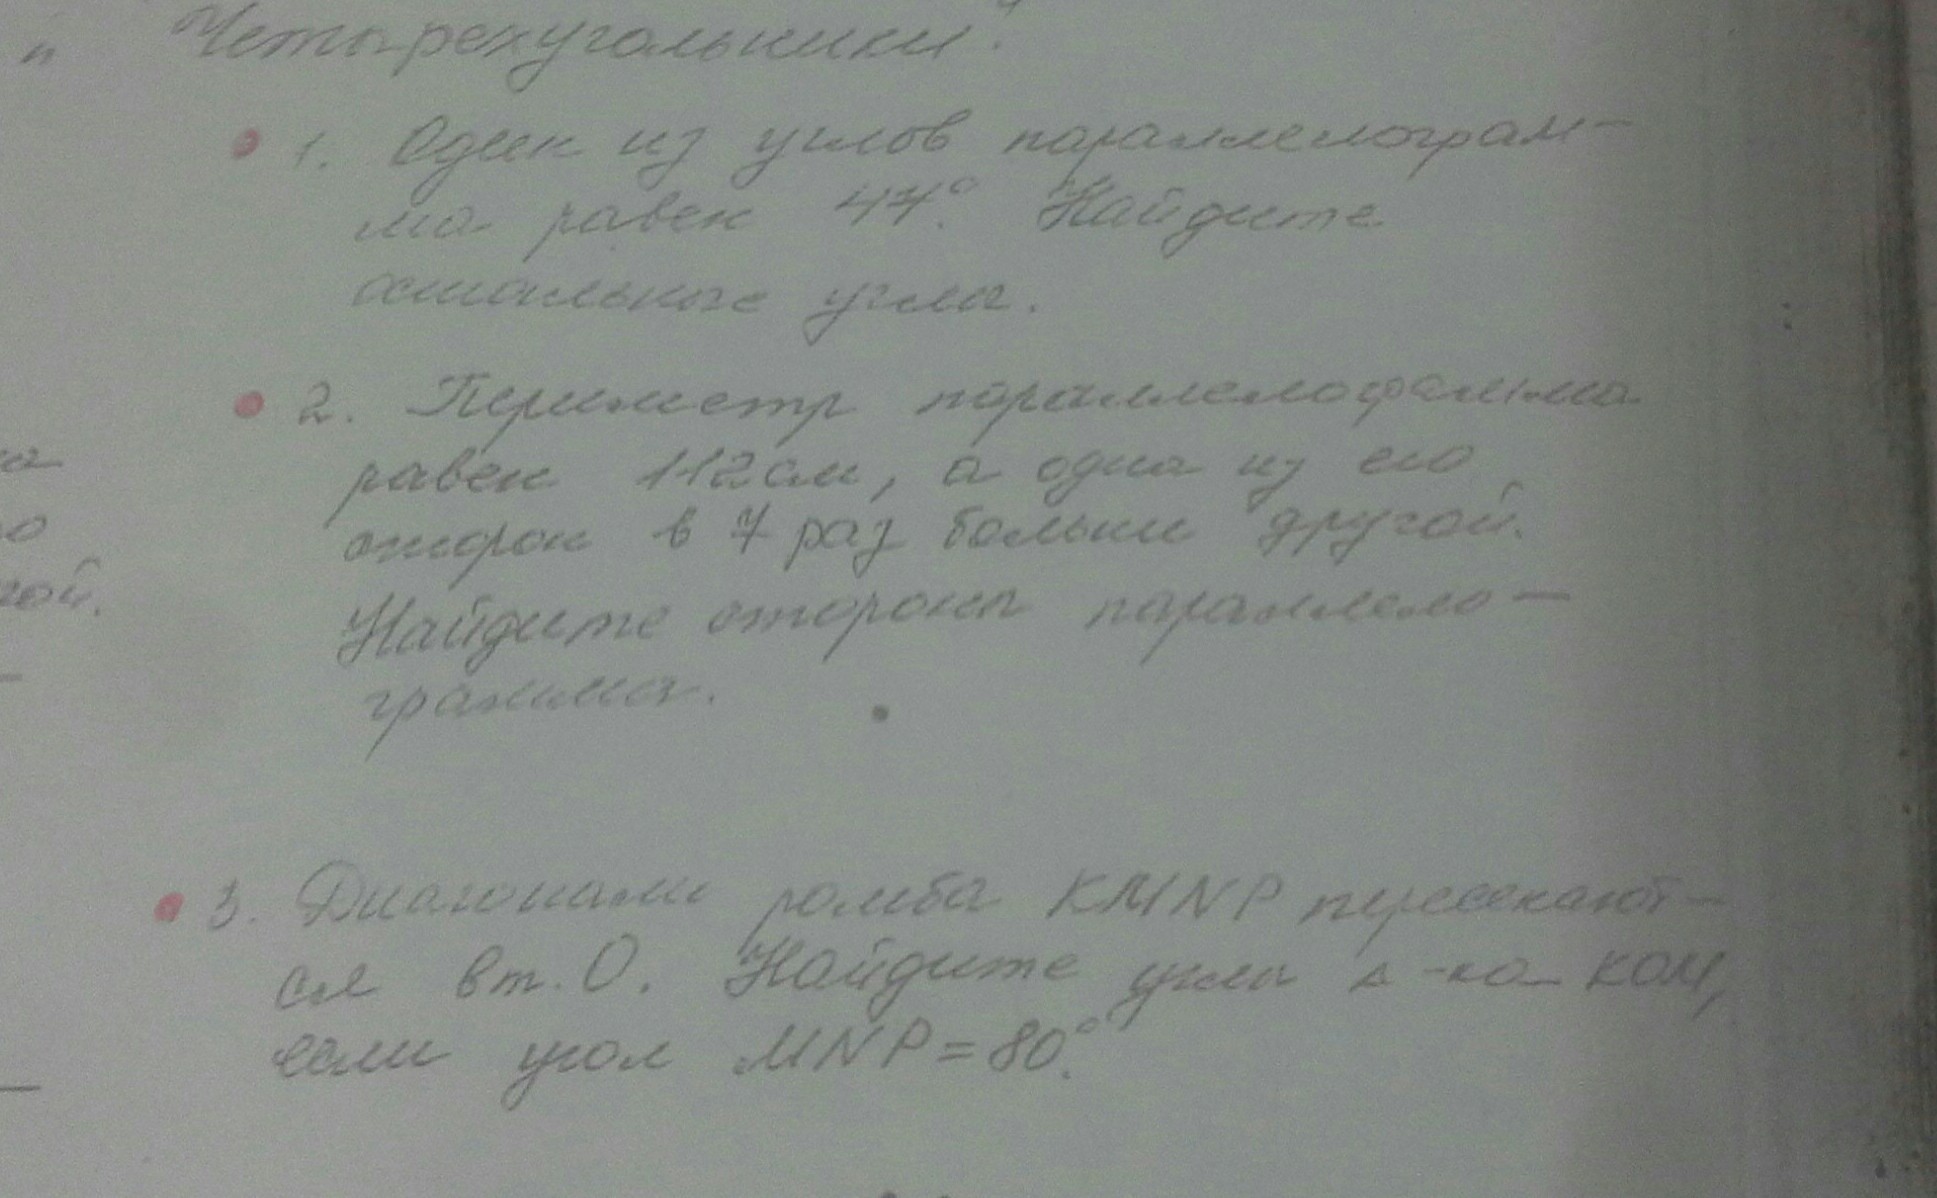 „ Четырехугольники“.
1. Один из углов параллелограм-
ма равен 47°. Найдите
остальные углы.
2. Периметр параллелограмма
равен 112 см, а одна из его
сторон в 7 раз больше другой.
Найдите стороны параллело-
грамма.
3. Диагонали ромба KMNP пересекают-
ся в т. О. Найдите углы ∆-ка КОМ,
если угол MNP = 80°.
на
го
гой.